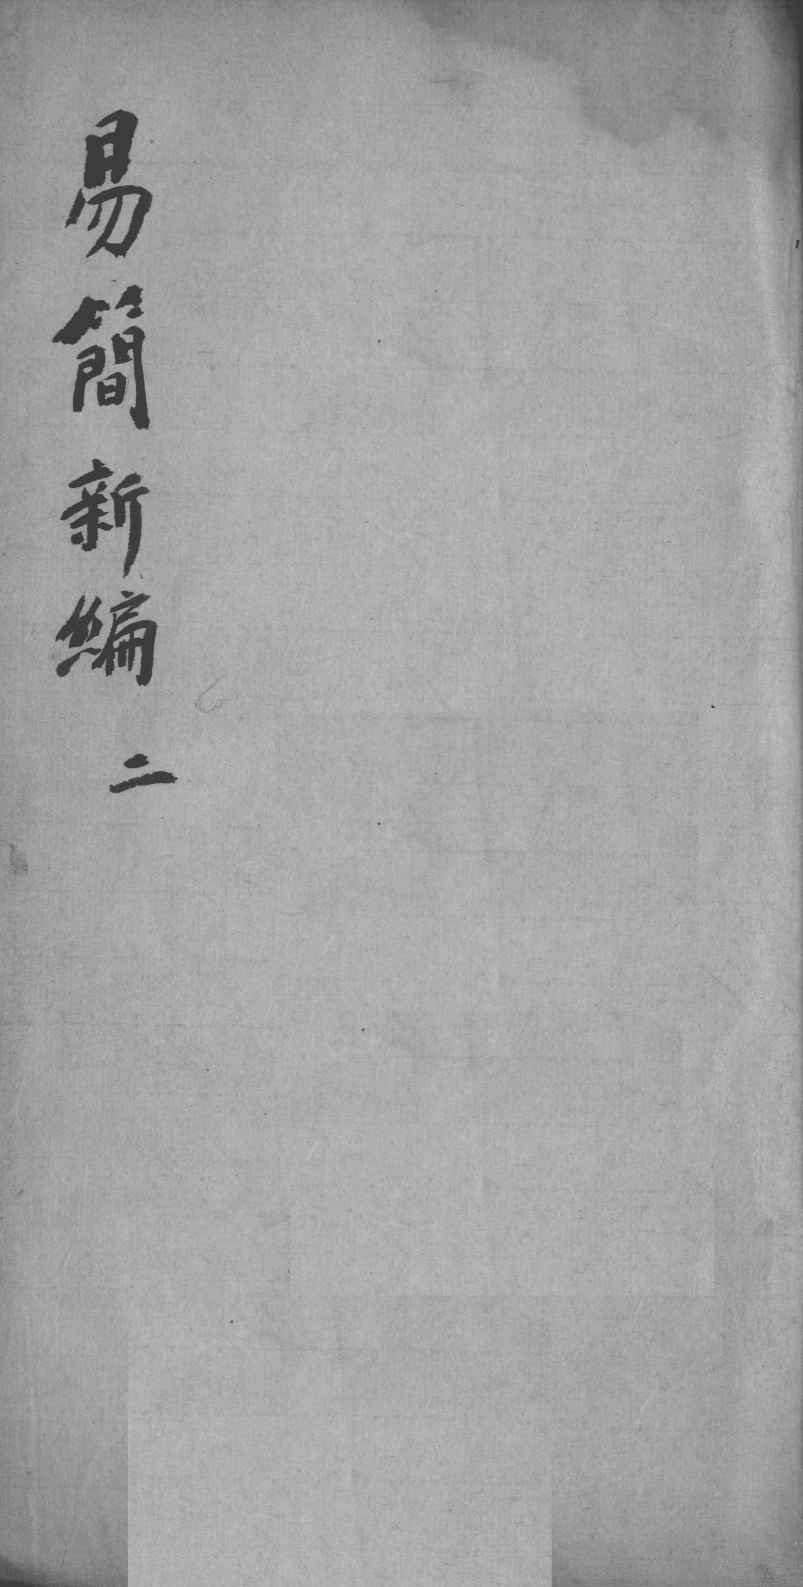 易簡新編 二